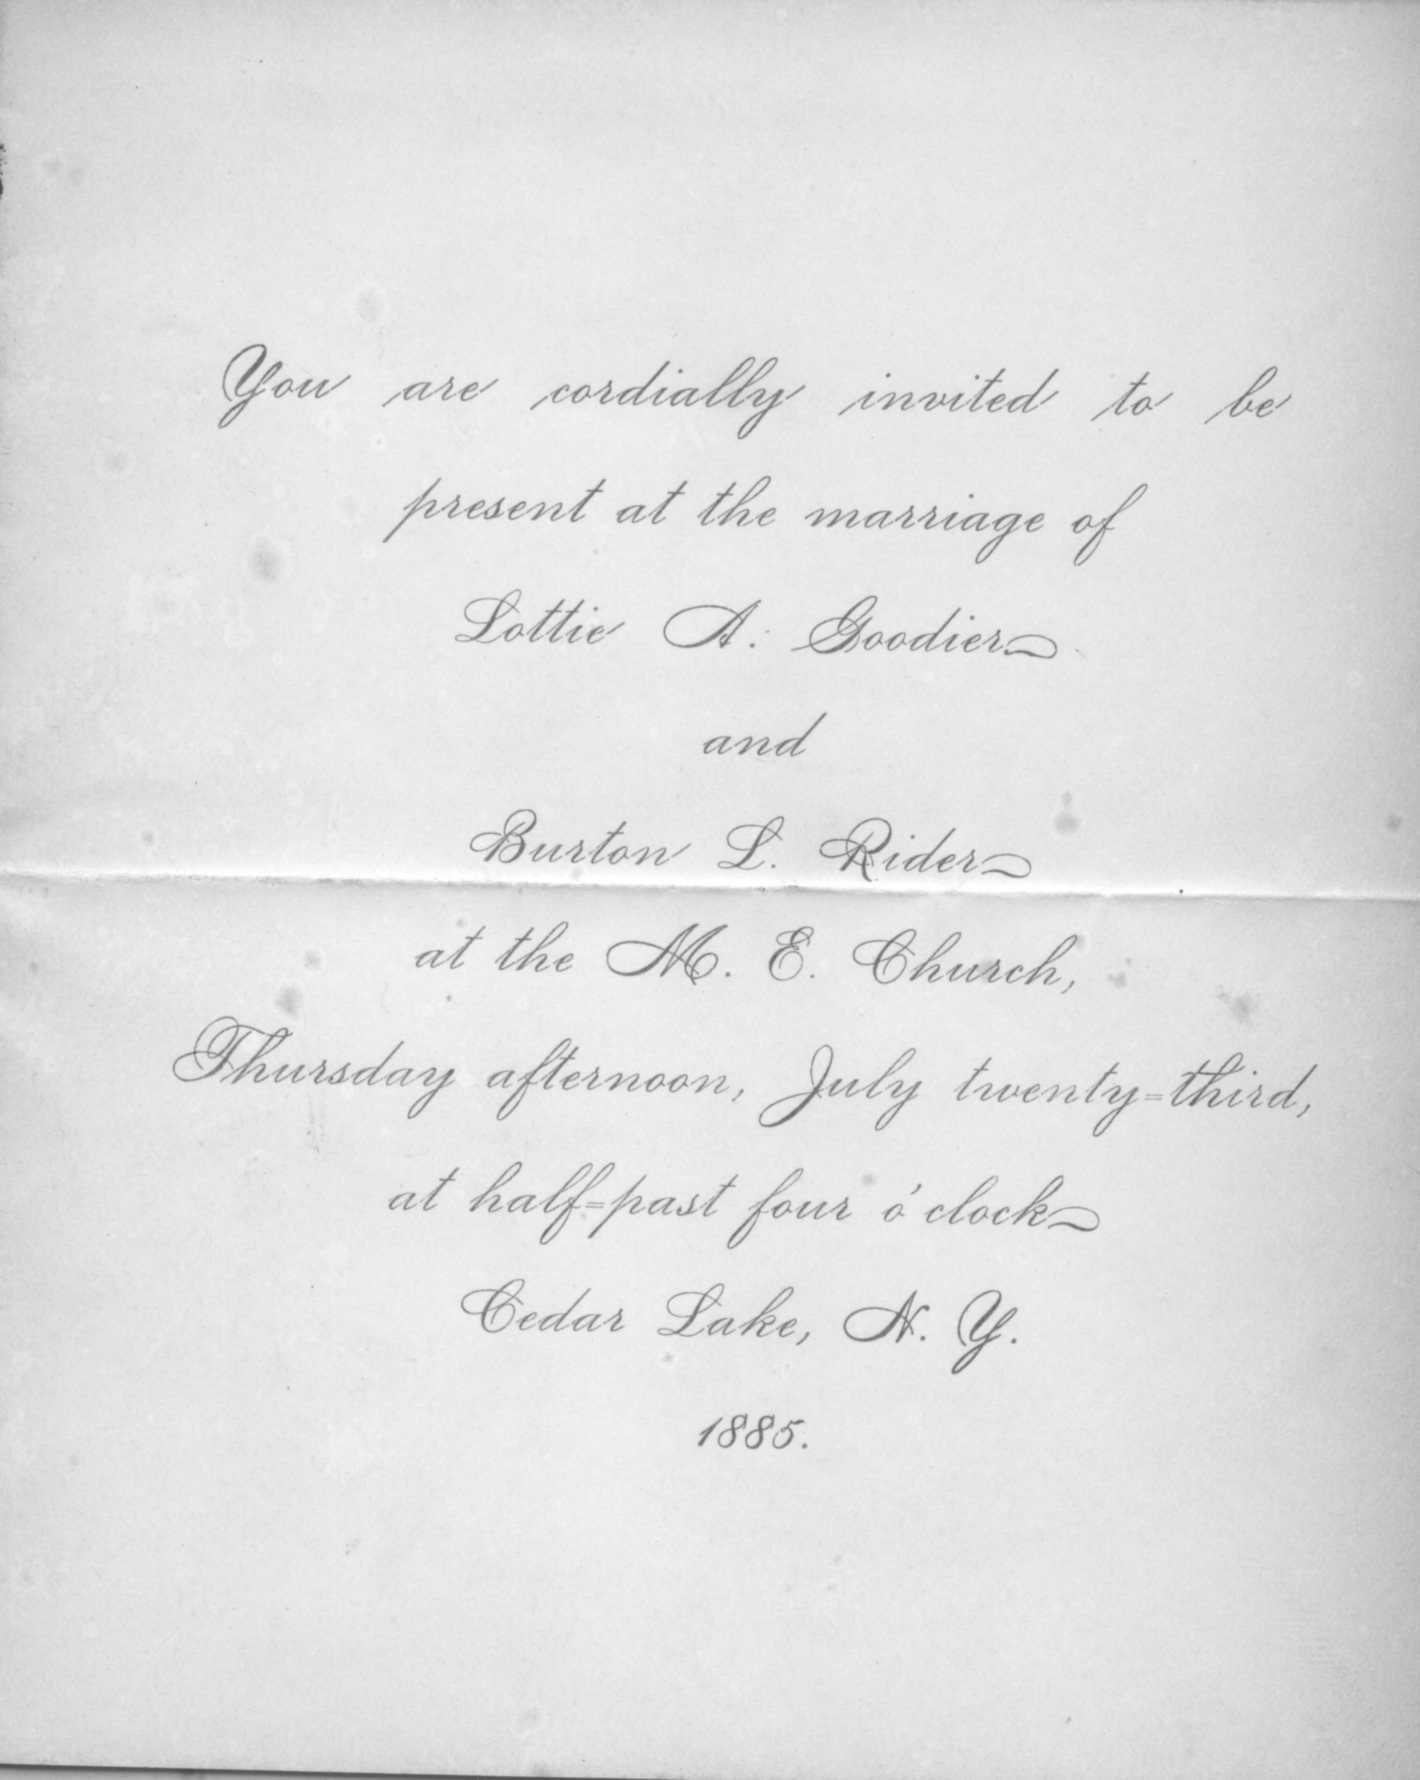 You are cordially invited to be
present at the marriage of
Lottie A. Goodier
and
Burton L. Rider
at the M. E. Church,
Thursday afternoon, July twenty=third,
at half=past four o'clock
Cedar Lake, N. Y.
1885.